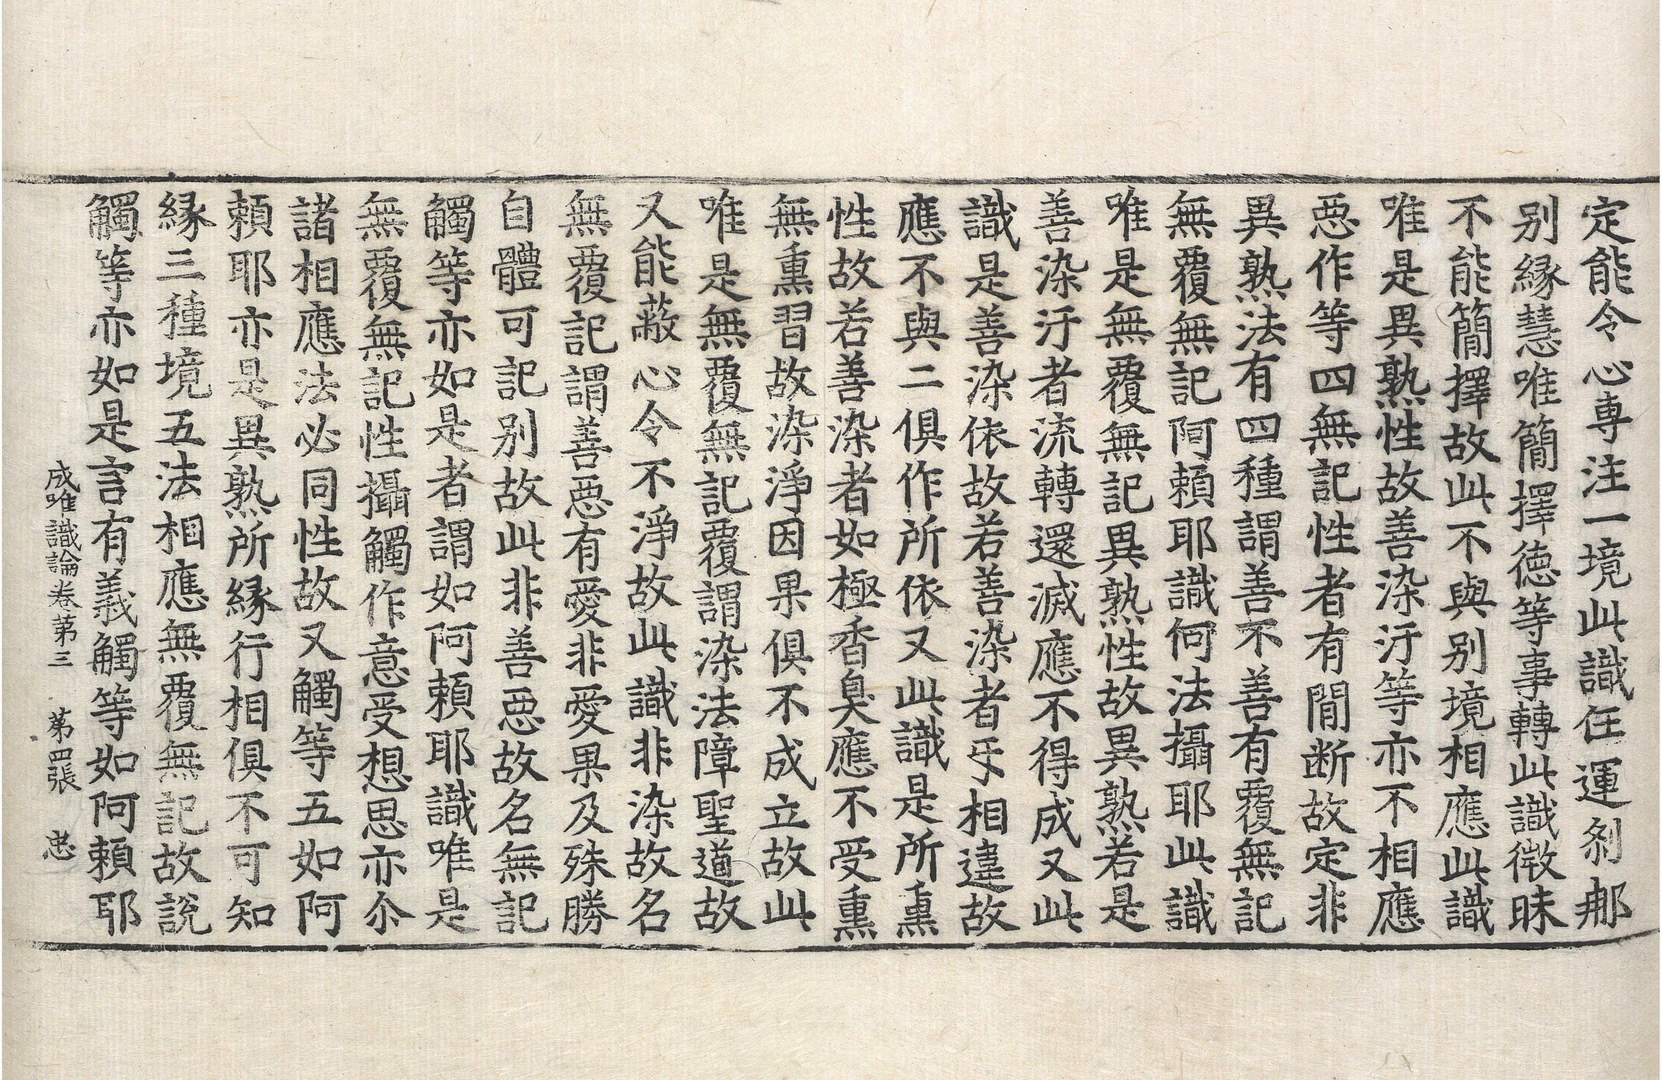 定能令心專注一境此識任運刹那
别縁慧唯簡擇徳等事轉此識微昧
不能簡擇故此不與别境相應此識
唯是異熟性故善染汙等亦不相應
惡作等四無記性者有間断故定非
異熟法有四種謂善不善有覆無記
無覆無記阿頼耶識何法攝耶此識
唯是無覆無記異熟性故異熟若是
善染汙者流轉還滅應不得成又此
識是善染依故若善染者互相違故
應不與二俱作所依又此識是所熏
性故若善染者如極香臭應不受熏
無熏習故染淨因果俱不成立故此
唯是無覆無記覆謂染法障聖道故
又能蔽心令不淨故此識非染故名
無覆記謂善惡有愛非愛果及殊勝
自體可記别故此非善惡故名無記
觸等亦如是者謂如阿頼耶識唯是
無覆無記性攝觸作意受想思亦尒
諸相應法必同性故又觸等五如阿
頼耶亦是異熟所縁行相俱不可知
縁三種境五法相應無覆無記故說
觸等亦如是言有義觸等如阿頼耶
成唯識論卷第三 第四張 忠